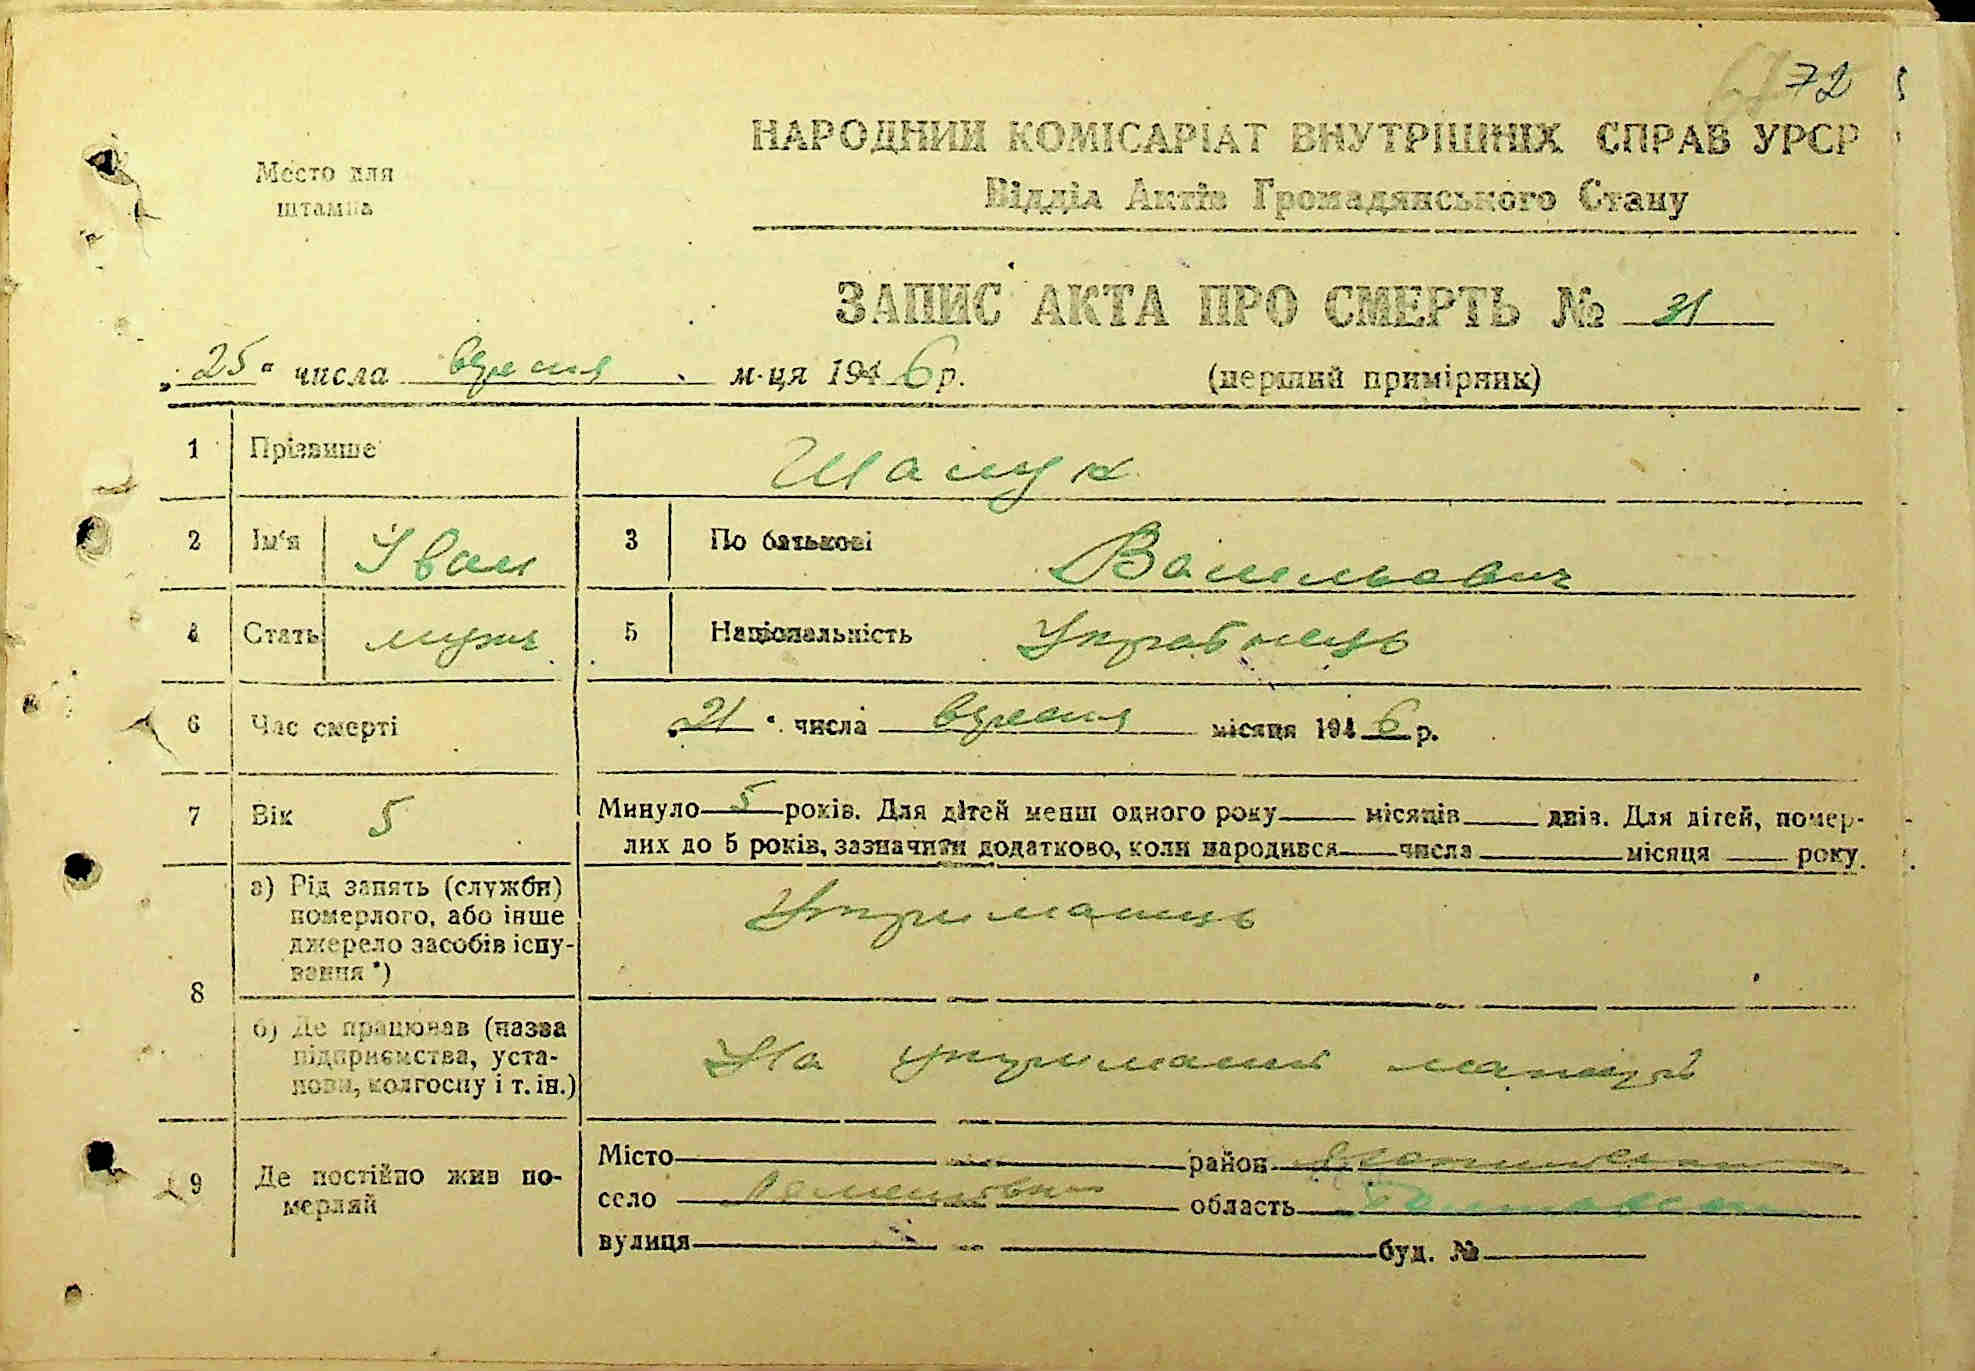 72
Место для
штампа
НАРОДНИЙ КОМІСАРІАТ ВНУТРІШНІХ СПРАВ УРСР
Відділ Актів Громадянського Стану
ЗАПИС АКТА ПРО СМЕРТЬ № 31
„25“ числа вересня м-ця 1946 р. (перший примірник)
1 Прізвище
2 Ім'я Іван 3 По батькові Васильович
4 Стать муж 5 Національність Українець
6 Час смерті „21“ числа вересня місяця 1946 р.
7 Вік 5 Минуло 5 років. Для дітей менш одного року місяців днів. Для дітей, помер-
лих до 5 років, зазначити додатково, коли народився числа місяця року.
8 а) Рід занять (служби)
померлого, або інше
джерело засобів існу-
вання *)
Утриманець
б) Де працював (назва
підприємства, уста-
нови, колгоспу і т. ін.)
На утриманні матері
9 Де постійно жив по-
мерлий
Місто район
село область Полтавська
вулиця буд. №